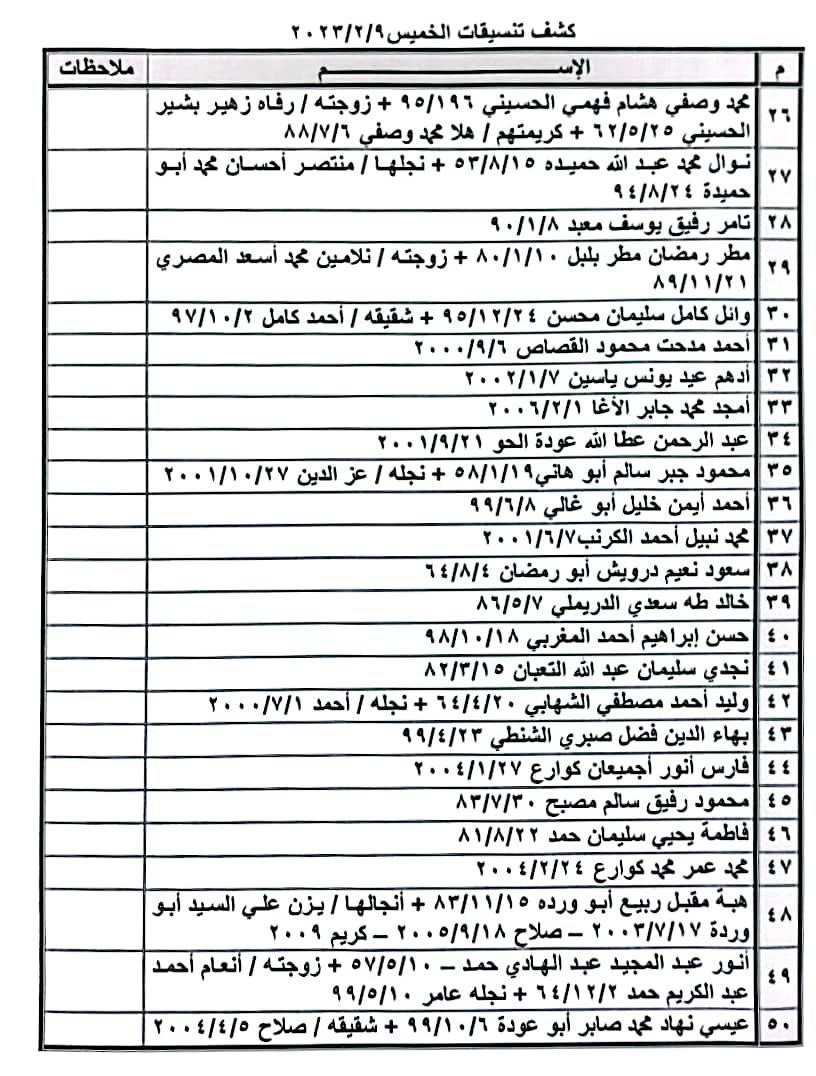 كشف تنسيقات الخميس ٢٠٢٣/٢/٩
م الإســـــــم ملاحظات
٢٦ محمد وصفي هشام فهمي الحسيني ٩٥/١٩٦ + زوجته / رفاه زهير بشير
الحسيني ٦٢/٥/٢٥ + كريمتهم / هلا محمد وصفي ٨٨/٧/٦
٢٧ نوال محمد عبد الله حميده ٥٣/٨/١٥ + نجلها / منتصر أحسان محمد أبو
حميدة ٩٤/٨/٢٤
٢٨ تامر رفيق يوسف معبد ٩٠/١/٨
٢٩ مطر رمضان مطر بلبل ٨٠/١/١٠ + زوجته / نلامين محمد أسعد المصري
٨٩/١١/٢١
٣٠ وائل كامل سليمان محسن ٩٥/١٢/٢٤ + شقيقه / أحمد كامل ٩٧/١٠/٢
٣١ أحمد مدحت محمود القصاص ٢٠٠٠/٩/٦
٣٢ أدهم عيد يونس ياسين ٢٠٠٢/١/٧
٣٣ أمجد محمد جابر الأغا ٢٠٠٦/٢/١
٣٤ عبد الرحمن عطا الله عودة الحو ٢٠٠١/٩/٢١
٣٥ محمود جبر سالم أبو هاني٥٨/١/١٩ + نجله / عز الدين ٢٠٠١/١٠/٢٧
٣٦ أحمد أيمن خليل أبو غالي ٩٩/٦/٨
٣٧ محمد نبيل أحمد الكرنب٢٠٠١/٦/٧
٣٨ سعود نعيم درويش أبو رمضان ٦٤/٨/٤
٣٩ خالد طه سعدي الدريملي ٨٦/٥/٧
٤٠ حسن إبراهيم أحمد المغربي ٩٨/١٠/١٨
٤١ نجدي سليمان عبد الله التعبان ٨٢/٣/١٥
٤٢ وليد أحمد مصطفي الشهابي ٦٤/٤/٢٠ + نجله / أحمد ٢٠٠٠/٧/١
٤٣ بهاء الدين فضل صبري الشنطي ٩٩/٤/٢٣
٤٤ فارس أنور أجميعان كوارع ٢٠٠٤/١/٢٧
٤٥ محمود رفيق سالم مصبح ٨٣/٧/٣٠
٤٦ فاطمة يحيي سليمان حمد ٨١/٨/٢٢
٤٧ محمد عمر محمد كوارع ٢٠٠٤/٢/٢٤
٤٨ هبة مقبل ربيع أبو ورده ٨٣/١١/١٥ + أنجالها / يزن علي السيد أبو
وردة ٢٠٠٣/٧/١٧ – صلاح ٢٠٠٥/٩/١٨ – كريم ٢٠٠٩
٤٩ أنور عبد المجيد عبد الهادي حمد – ٥٧/٥/١٠ + زوجته / أنعام أحمد
عبد الكريم حمد ٦٤/١٢/٢ + نجله عامر ٩٩/٥/١٠
٥٠ عيسي نهاد محمد صابر أبو عودة ٩٩/١٠/٦ + شقيقه / صلاح ٢٠٠٤/٤/٥